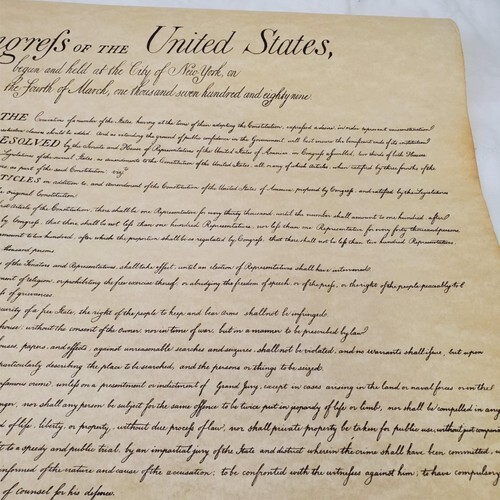 ngreſs OF THE United States,
begun and held at the City of New York, on
the Fourth of March, one thousand seven hundred and eighty nine
THE Conventions of a number of the States having at the time of their adopting the Constitution, expressed a desire in order to prevent misconstruction
clauses should be added: And as extending the ground of public confidence in the Government will best ensure the beneficent ends of its institution
ESOLVED by the Senate and House of Representatives of the United States of America in Congress assembled, two thirds of both Houses
Legislatures of the several States as amendments to the Constitution of the United States, all, or any of which articles, when ratified by three fourths of the
as part of the said Constitution. viz.
TICLES in addition to, and amendment of the Constitution of the United States of America, proposed by Congress, and ratified by the Legislatures
original Constitution.
irst Article of the Constitution, there shall be one Representative for every thirty thousand, until the number shall amount to one hundred, after
by Congress, that there shall be not less than one hundred Representatives, nor less than one Representative for every forty thousand persons
amount to two hundred, after which the proportion shall be so regulated by Congress, that there shall not be less than two hundred Representatives,
thousand persons
of the Senators and Representatives, shall take effect, until an election of Representatives shall have intervened.
ment of religion, or prohibiting the free exercise thereof, or abridging the freedom of speech, or of the preſs, or the right of the people peaceably to
ſs of grievances.
urity of a free State, the right of the people to keep and bear arms shall not be infringed.
house, without the consent of the owner, nor in time of war, but in a manner to be prescribed by law.
ouses, papers, and effects, against unreasonable searches and seizures, shall not be violated, and no warrants shall iſsue, but upon
particularly describing the place to be searched, and the persons or things to be seized.
nfamous crime, unleſs on a presentment or indictment of Grand Jury, except in cases arising in the land or naval forces, or in the
nger, nor shall any person be subject for the same offence to be twice put in jeopardy of life or limb, nor shall be compelled in any
d of life, liberty, or property, without due proceſs of law, nor shall private property be taken for public use, without just
t to a speedy and public trial, by an impartial jury of the State and district wherein the crime shall have been committed, w
informed of the nature and cause of the accusation, to be confronted with the witneſses against him, to have compulsory
of counsel for his defence.